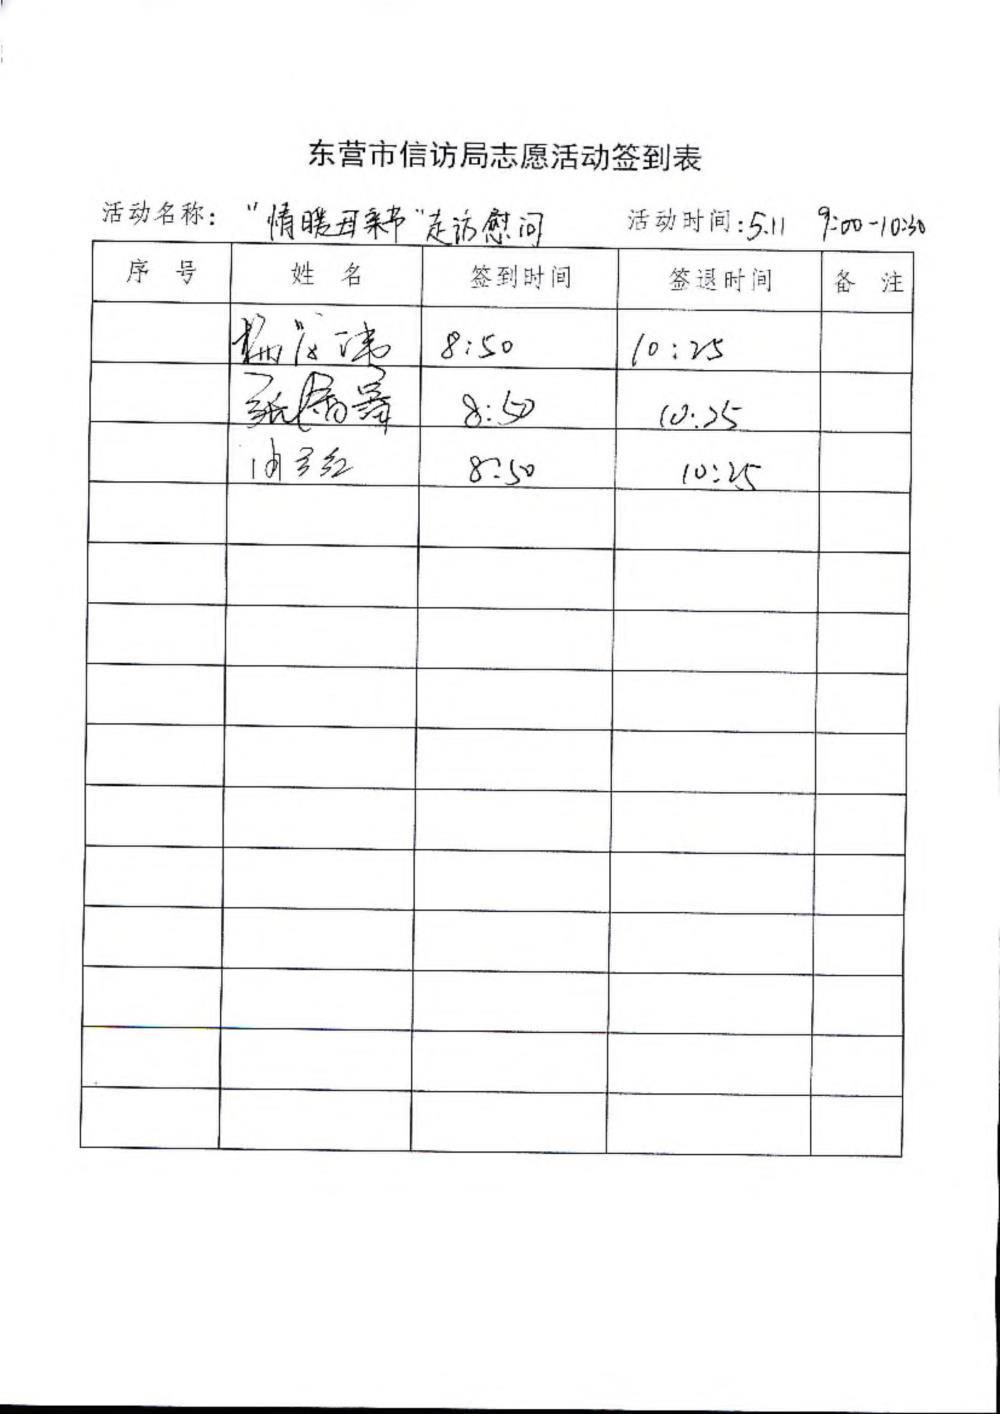 东营市信访局志愿活动签到表
活动名称："情暖母亲节"走访慰问 活动时间:5.11 9:00-10:30
序 号 姓 名 签到时间 签退时间 备 注
8:50 10:25
8:50 10:25
8:50 10:25